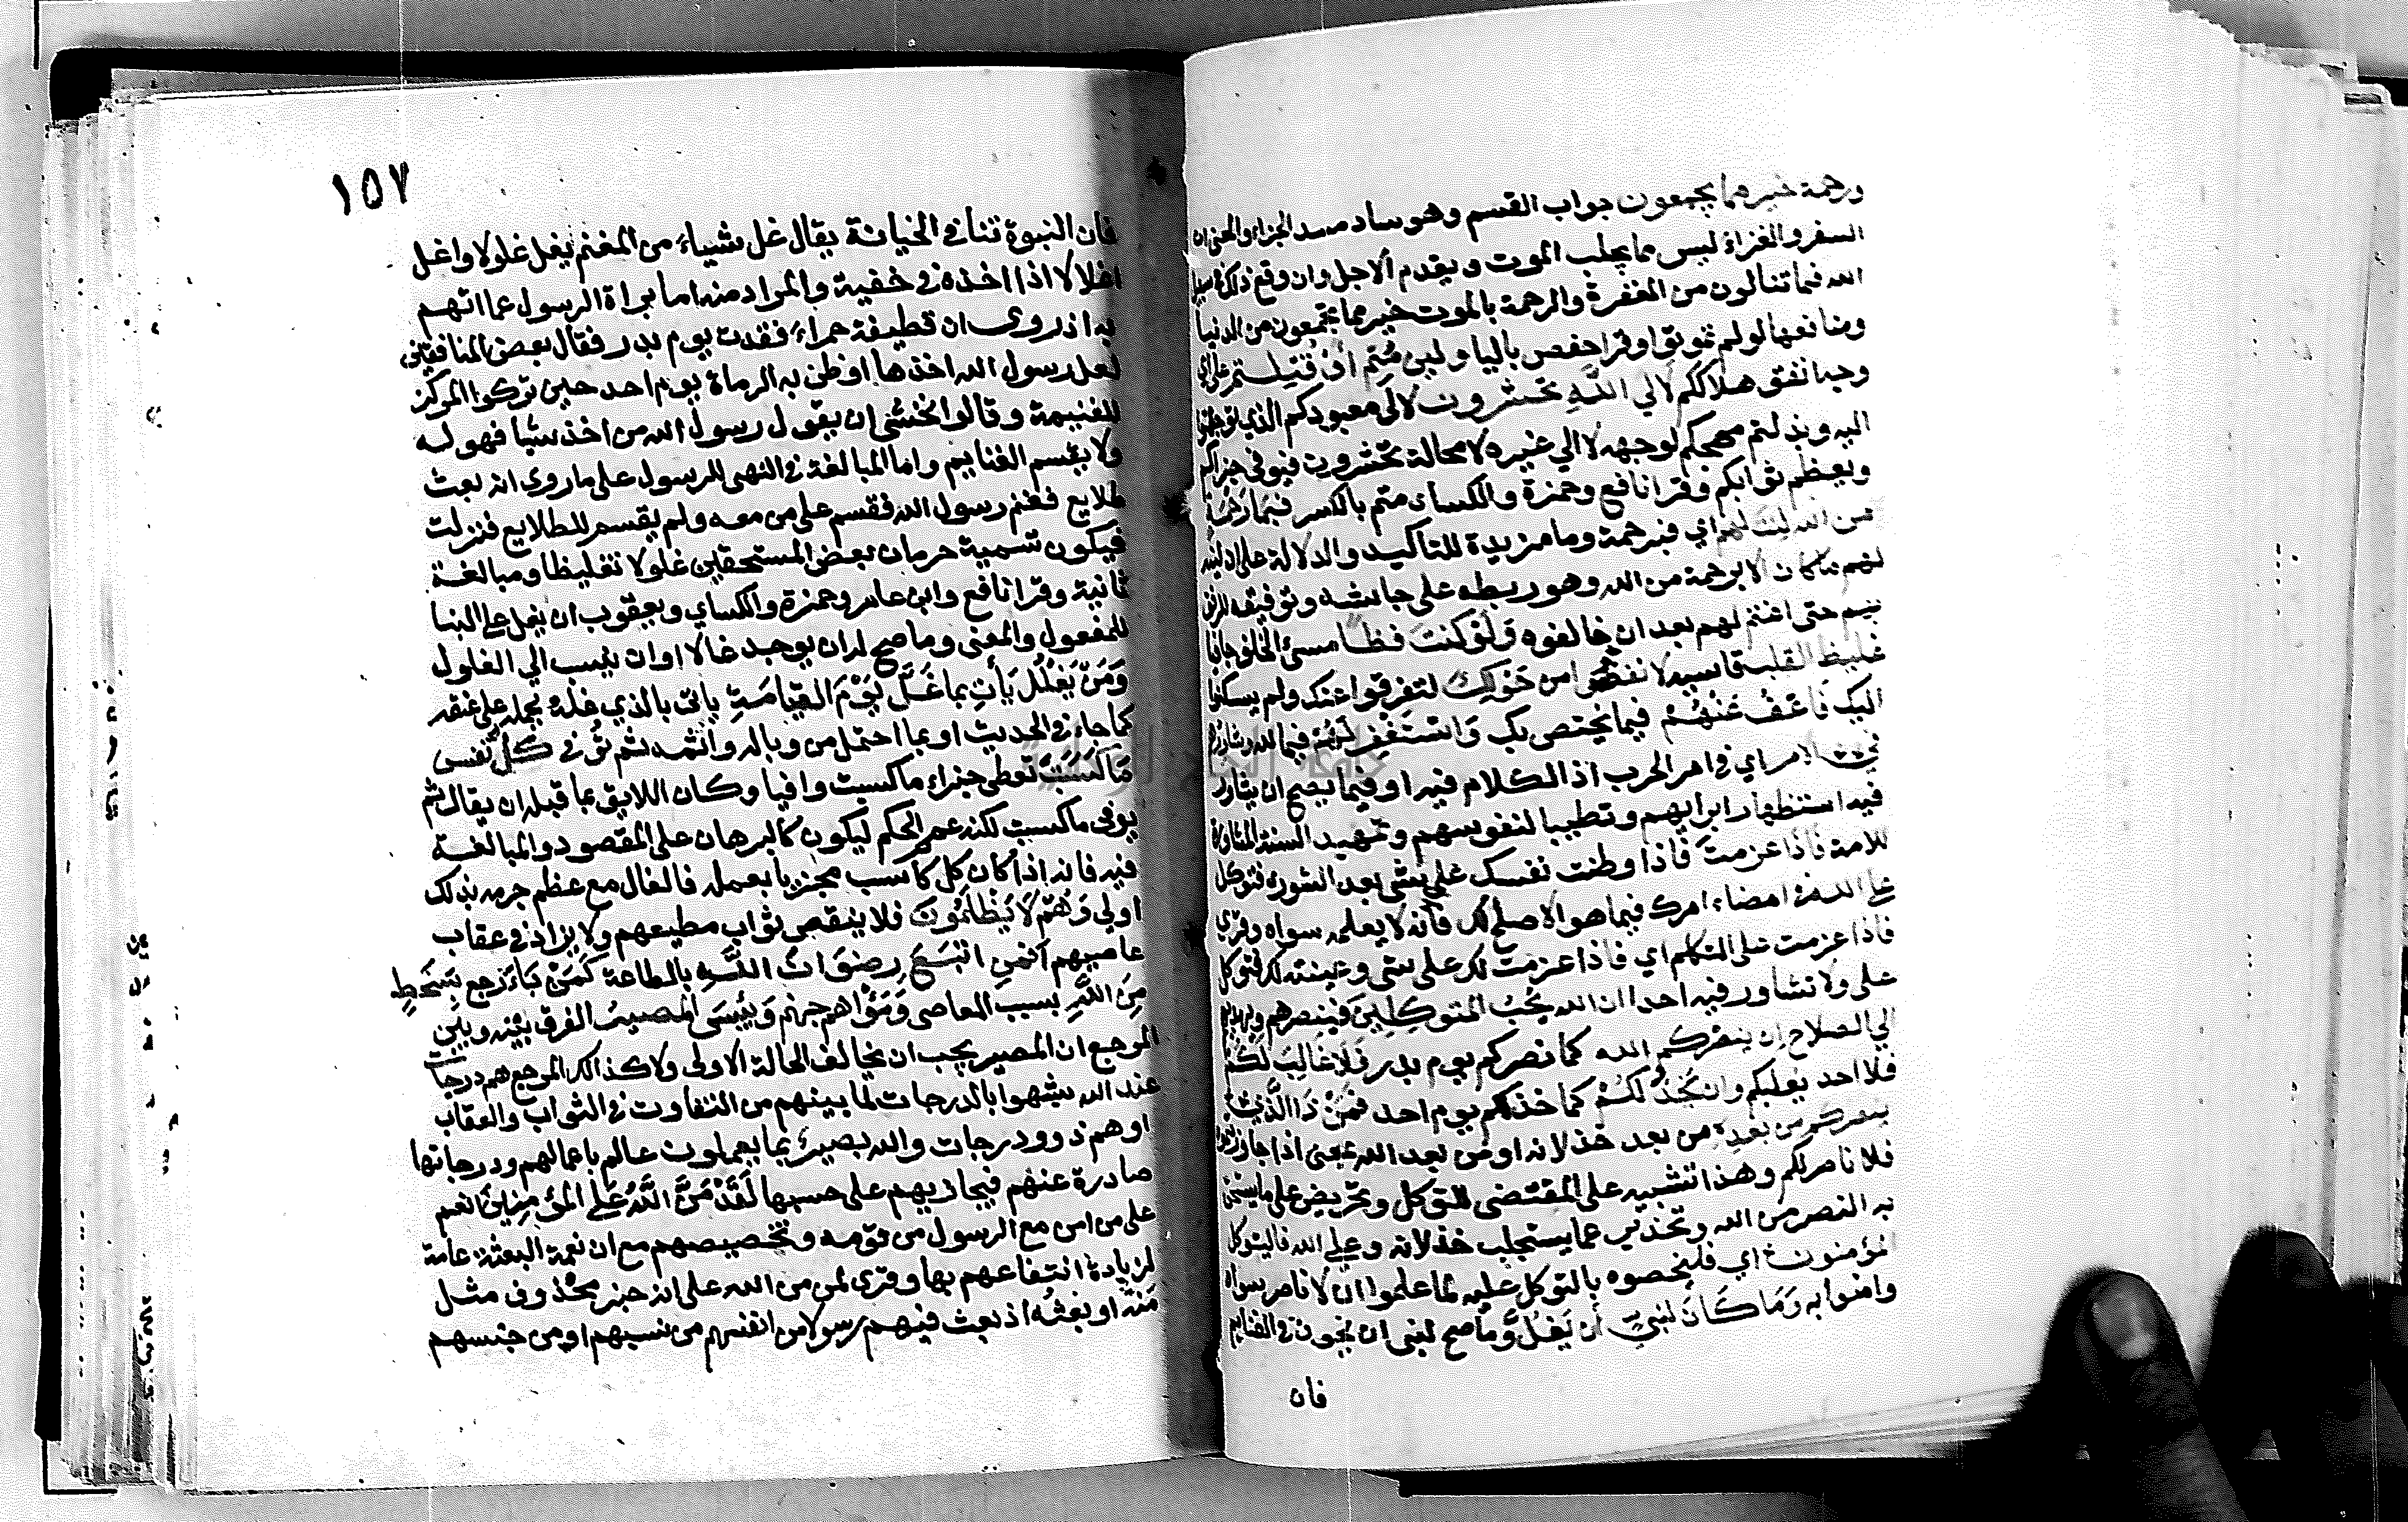 ورحمة خير مما يجمعون جواب القسم وهو ساد مسد الجزاء والمعنى ان
السفر والغزاة ليس مما يجلب الموت ويقدم الاجل وان وقع ذلك في سبيل
الله فما تنالون من المغفرة والرحمة بالموت خير مما تجمعون من الدنيا
ومنافعها لو لم تموتوا وقرا حفص بالياء ولين متم او قتلتم على اي
وجه اتفق هلاككم لالي الله تحشرون لالى معبودكم الذي توجهتم
اليه وبذلتم مهجكم لوجهه لا الي غيره لا محالة تحشرون فيوفي جزاكم
ويعظم ثوابكم وقرا نافع وحمزة والكساى متم بالكسر فبما رحمة
من الله لنت لهم اي فبرحمة وما مزيدة للتاكيد والدلالة على ان لينه
لهم ما كان الا برحمة من الله وهو ربطه على جاشه وتوفيقه للرفق
بهم حتى اغتم لهم بعد ان خالفوه ولو كنت فظا سيئ الخلق جافيا
غليظ القلب قاسيه لانفضوا من حولك لتفرقوا عنك ولم يسكنوا
اليك فاعف عنهم فيما يختص بك واستغفر لهم فيما لله وشاورهم
في الامر اي في امر الحرب اذ الكلام فيه او فيما يصح ان يشاور
فيه استظهارا برايهم وتطييبا لنفوسهم وتمهيد السنة المشاورة
للامة فاذا عزمت فاذا وطنت نفسك على شى بعد الشورى فتوكل
على الله في امضاء امرك فيما هو الاصلح لك فانه لا يعلمه سواه وقري
فاذا عزمت على التكلم اي فاذا عزمت لك على شى وعينته لك فتوكل
على ولا تشاور فيه احدا ان الله يحب المتوكلين فينصرهم ويهديهم
الي الصلاح ان ينصركم الله كما نصركم يوم بدر فلا غالب لكم
فلا احد يغلبكم وان يخذلكم كما خذلكم يوم احد فمن ذا الذي
ينصركم من بعده من بعد خذلانه او من بعد الله بمعنى اذا جاوزتموه
فلا ناصر لكم وهذا تنبيه على المقتضى للتوكل وتحريض على ما يستحق
به النصر من الله وتحذير عما يستجلب خذلانه وعلي الله فليتوكل
المؤمنون اي فليخصوه بالتوكل عليه لما علموا ان لا ناصر سواه
وامنوا به وما كان لنبي ان يغل وما صح لنبى ان يخون في الغنايم
فان
١٥٧
فان النبوة تنافي الخيانة يقال غل شيئا من المغنم يغل غلولا واغل
اغلالا اذا اخذه في خفية والمراد منه اما براة الرسول عما اتهم
به اذ روى ان قطيفة حمراء فقدت يوم بدر فقال بعض المنافقين
لعل رسول الله اخذها او ظن به الرماة يوم احد حين تركوا المركز
للغنيمة وقالوا نخشى ان يقول رسول الله من اخذ شيا فهو له
ولا يقسم الغنايم واما المبالغة في النهى للرسول على ما روى انه بعث
طلايع فغنم رسول الله فقسم على من معه ولم يقسم للطلايع فنزلت
فيكون تسمية حرمان بعض المستحقين غلولا تغليظا ومبالغة
ثانية وقرا نافع وابن عامر وحمزة والكساي ويعقوب ان يغل على البنا
للمفعول والمعنى وما صح له ان يوجد غالا او ان ينسب الي الغلول
ومن يغلل يأت بما غل يوم القيامة ياتى بالذي غله يحمله على عنقه
كما جاء في الحديث او بما احتمل من وباله واثمه ثم توفى كل نفس
ما كسبت تعطى جزاء ما كسبت وافيا وكان اللايق بما قبله ان يقال ثم
يوفى ما كسبت لكنه عمم الحكم ليكون كالبرهان على المقصود والمبالغة
فيه فانه اذا كان كل كاسب مجزيا بعمله فالغال مع عظم جرمه بذلك
اولي وهم لا يظلمون فلا ينقص ثواب مطيعهم ولا يزاد في عقاب
عاصيهم افمن اتبع رضوان الله بالطاعة كمن باء رجع بسخط
من الله بسبب المعاصى ومؤاهم جهنم وبيس المصير الفرق بينه وبين
المرجع ان المصير يجب ان يخالف الحالة الاولى ولا كذالك المرجع هم درجات
عند الله شبهوا بالدرجات لما بينهم من التفاوت في الثواب والعقاب
او هم ذوو درجات والله بصير بما يعملون عالم باعمالهم ودرجاتها
صادرة عنهم فيجازيهم على حسبها لقد من الله على المؤمنين انعم
على من امن مع الرسول من قومه وتخصيصهم مع ان نعمة البعثة عامة
لزيادة انتفاعهم بها وقرى لمن من الله على انه خبر محذوف مثل
منه او بعثه اذ بعث فيهم رسولا من انفسهم من نسبهم او من جنسهم